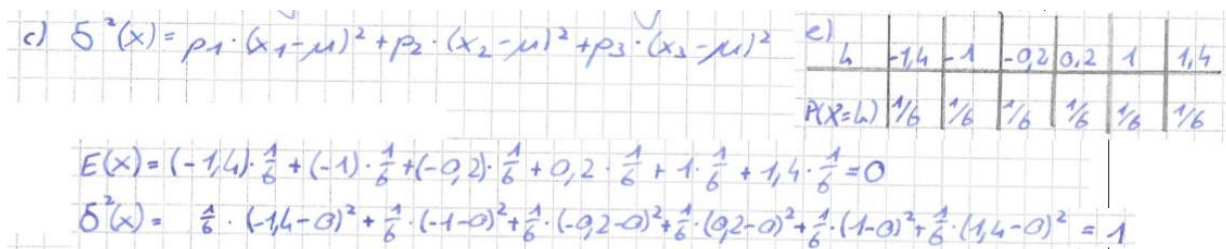 c) δ²(x) = p1 · (x1-μ)² + p2 · (x2-μ)² + p3 · (x3-μ)²
e)
k | -1,4 | -1 | -0,2 | 0,2 | 1 | 1,4
P(X=k) | 1/6 | 1/6 | 1/6 | 1/6 | 1/6 | 1/6
E(x) = (-1,4) · 1/6 + (-1) · 1/6 + (-0,2) · 1/6 + 0,2 · 1/6 + 1 · 1/6 + 1,4 · 1/6 = 0
δ²(x) = 1/6 · (-1,4-0)² + 1/6 · (-1-0)² + 1/6 · (-0,2-0)² + 1/6 · (0,2-0)² + 1/6 · (1-0)² + 1/6 · (1,4-0)² = 1